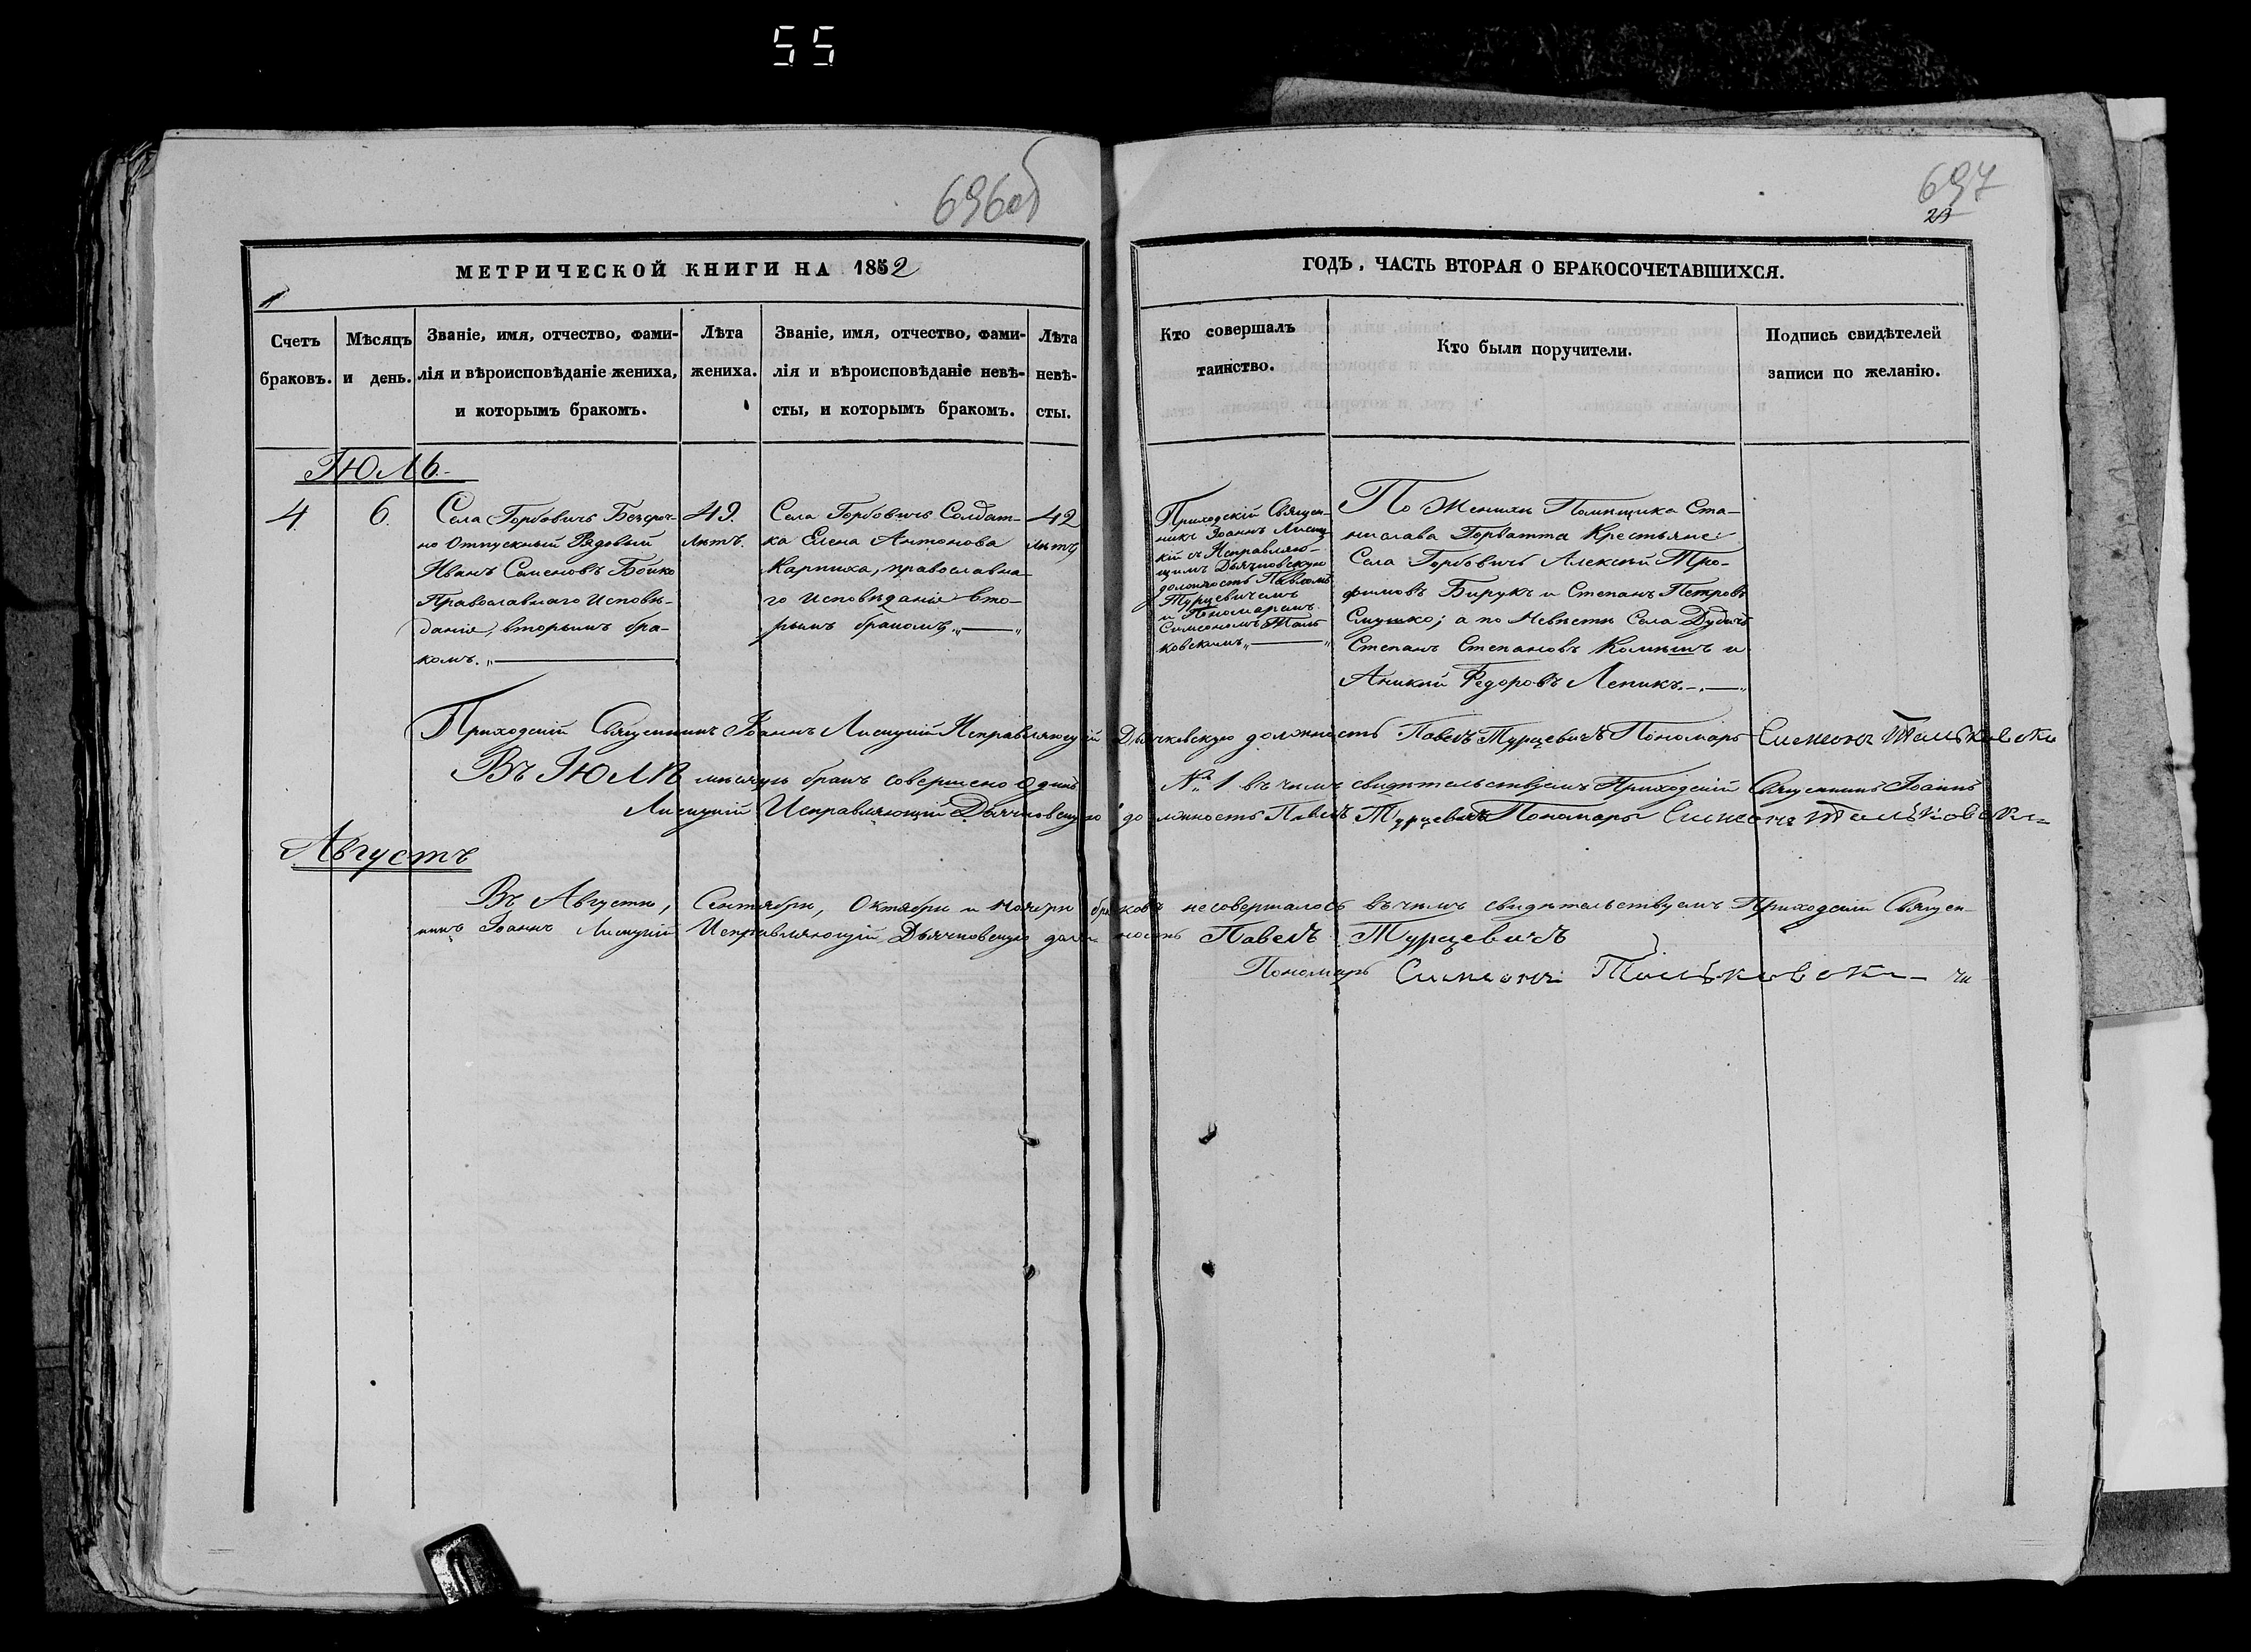 55
696об
697
29
МЕТРИЧЕСКОЙ КНИГИ НА 1852
ГОДЪ, ЧАСТЬ ВТОРАЯ О БРАКОСОЧЕТАВШИХСЯ.
Счетъ браковъ.
Мѣсяцъ и день.
Званіе, имя, отчество, фами-
лія и вѣроисповѣданіе жениха,
и которымъ бракомъ.
Лѣта
жениха.
Званіе, имя, отчество, фами-
лія и вѣроисповѣданіе невѣ-
сты, и которымъ бракомъ.
Лѣта
невѣ-
сты.
Кто совершалъ
таинство.
Кто были поручители.
Подпись свидѣтелей
записи по желанію.
Іюль.
4
6.
Села Горбовичъ Безсроч-
но Отпускный Рядовый
Иванъ Семеновъ Бойко
Православнаго Исповѣ-
данія, вторымъ бра-
комъ.
49.
лѣтъ.
Села Горбовичъ Солдат-
ка Елена Антонова
Карпиха, православна-
го Исповѣданія вто-
рымъ бракомъ
42
лѣтъ
Приходскій Священ-
никъ Іоаннъ Лисиц-
кій съ Исправляю-
щимъ Дьячковскую
должность Павломъ
Турцевичемъ
и Пономаремъ
Симеономъ Таль-
ковскимъ
По Женихѣ Помѣщика Ста-
нислава Горватта Крестьяне:
Села Горбовичъ Алексѣй Тро-
фимовъ Бирукъ и Степанъ Петровъ
Смушко; а по Невѣстѣ Села Дудичъ
Степанъ Степановъ и
Аникій Федоровъ Лепикъ.
Приходскій Священникъ Іоаннъ Лисицкій Исправляющій Дьячковскую должность Павелъ Турцевичъ Пономарь Симеонъ Тальковски
Въ Іюлѣ мѣсяцѣ бракъ совершено одинъ № 1 въ чемъ свидѣтельствуемъ Приходскій Священникъ Іоаннъ
Лисицкій Исправляющій Дьячковскую должность Павелъ Турцевичъ Пономарь Симеонъ Тальковски
Августъ
Въ Августѣ, Сентябрѣ, Октябрѣ и Ноябрѣ браковъ несовершалось въ чемъ свидѣтельствуемъ Приходскій Священ-
никъ Іоаннъ Лисицкій Исправляющій Дьячковскую должность Павелъ Турцевичъ
Пономарь Симеонъ Тальковски